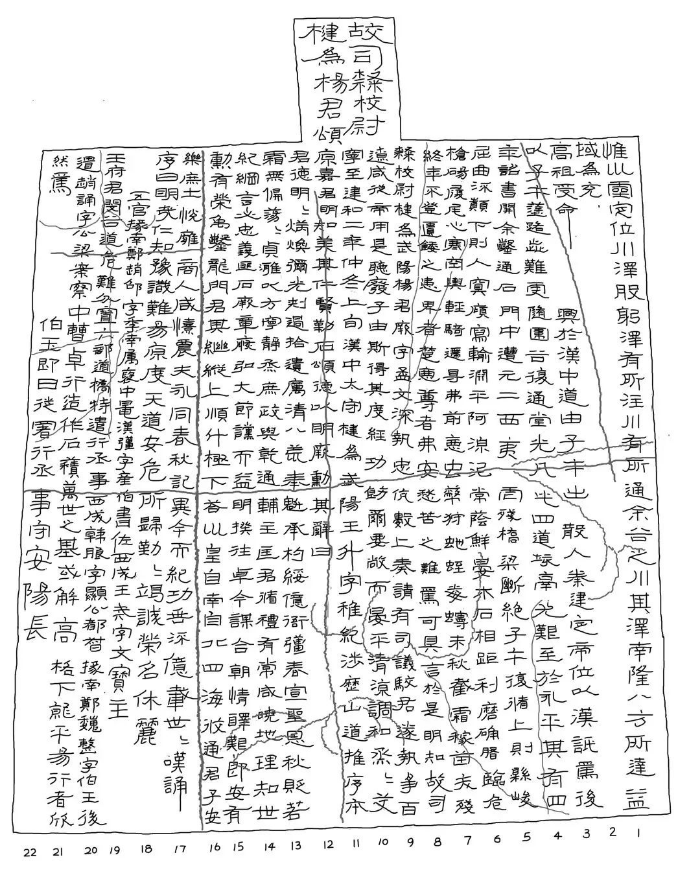 故司隸校尉
楗為楊君頌
惟巛靈定位川澤股躬澤有所注川有所通余谷之川其澤南隆八方所達益
域為充
高祖受命興於漢中道由子午出散入秦建定帝位以漢詆焉後
以子午途路歰難更隨圍谷復通堂光凡此四道垓鬲尤艱至於永平其有四
年詔書開余鑿通石門中遭元二西夷虐殘橋梁斷絕子午復循上則縣峻
屈曲流顛下則入冥傾寫輸淵平阿湶泥常蔭鮮晏木石相距利磨确磐臨危
槍碭履尾心寒空輿輕騎遰㝵弗前惡虫䘈狩虵蛭毒蟃未秋截霜稼苗夭殘
終年不登匱餧之患卑者楚惡尊者弗安愁苦之難焉可具言於是明知故司
隸校尉楗為武陽楊君厥字孟文深執忠伉數上奏請有司議駮君遂執爭百
遼咸從帝用是聽廢子由斯得其度經功飭爾要敞而晏平清涼調和烝烝艾
寧至建和二年仲冬上旬漢中太守楗為武陽王升字稚紀涉歷山道推序本
原嘉君明知美其仁賢勒石頌德以明厥勳其辭曰
君德明明炳煥彌光刺過拾遺厲清八荒奉魁承杓綏億衙彊春宣聖恩秋貶若
霜無偏蕩蕩貞雅以方寧靜烝庶政與乾通輔主匡君循禮有常咸曉地理知世
紀綱言必忠義匪石厥章恢弘大節讜而益明揆往卓今謀合朝情醳艱即安有
勳有榮禹鑿龍門君其繼縱上順斗極下答巛皇自南自北四海攸通君子安
樂庶士悅雍商人咸憘農夫永同春秋記異今而紀功垂流億載世世嘆誦
序曰明哉仁知豫識難易原度天道安危所歸勤勤竭誠榮名休麗
五官掾南鄭趙邵字季南屬褒中鼂漢彊字產伯書佐西成王戒字文寶主
王府君閔谷道危難分置六部道橋特遣行丞事西成韓朖字顯公都督掾南鄭魏整字伯玉後
遣趙誦字公梁案察中曹卓行造作石積萬世之基或解高格下就平易行者欣
然焉伯玉即日徙署行丞事守安陽長
22 21 20 19 18 17 16 15 14 13 12 11 10 9 8 7 6 5 4 3 2 1